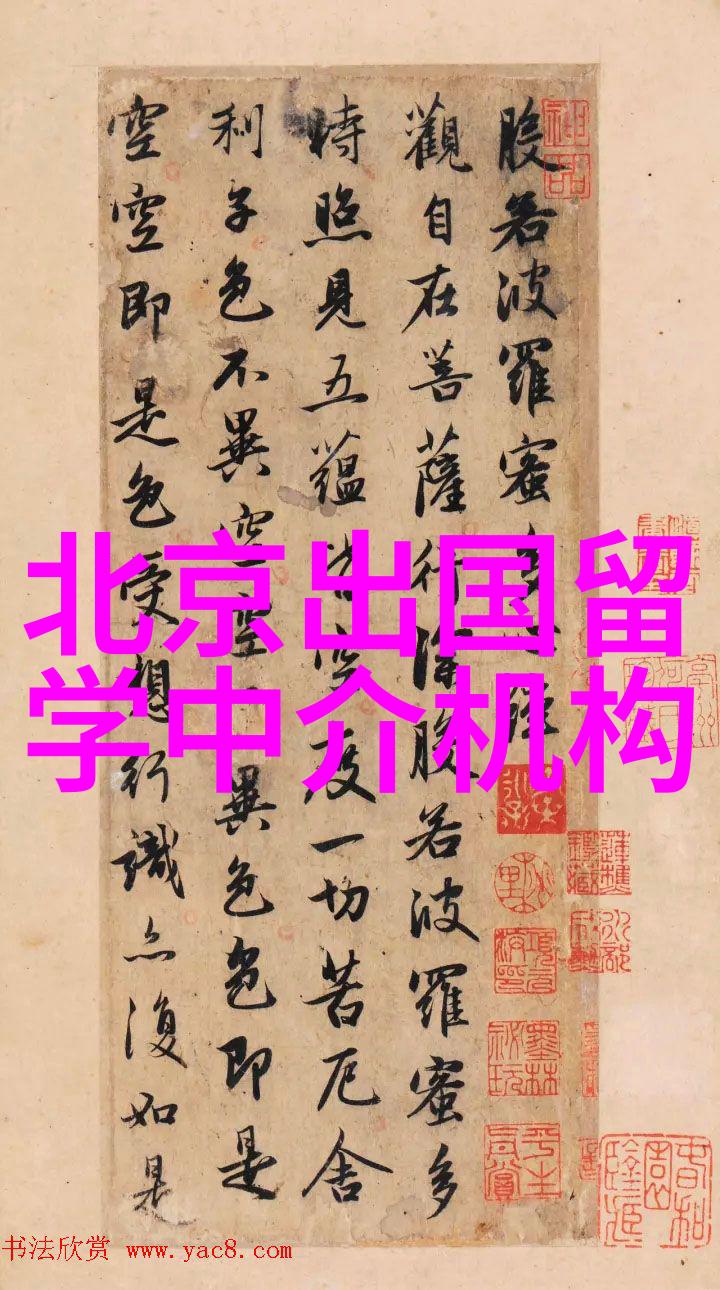 般若波羅蜜多心經
觀自在菩薩行深般若波羅蜜多
時照見五蘊皆空度一切苦厄舍
利子色不異空空不異色色即是
空空即是色受想行識亦復如是
北京出国留
学中介机构
神品
墨林
秘玩
书法欣赏 www.yac8.com